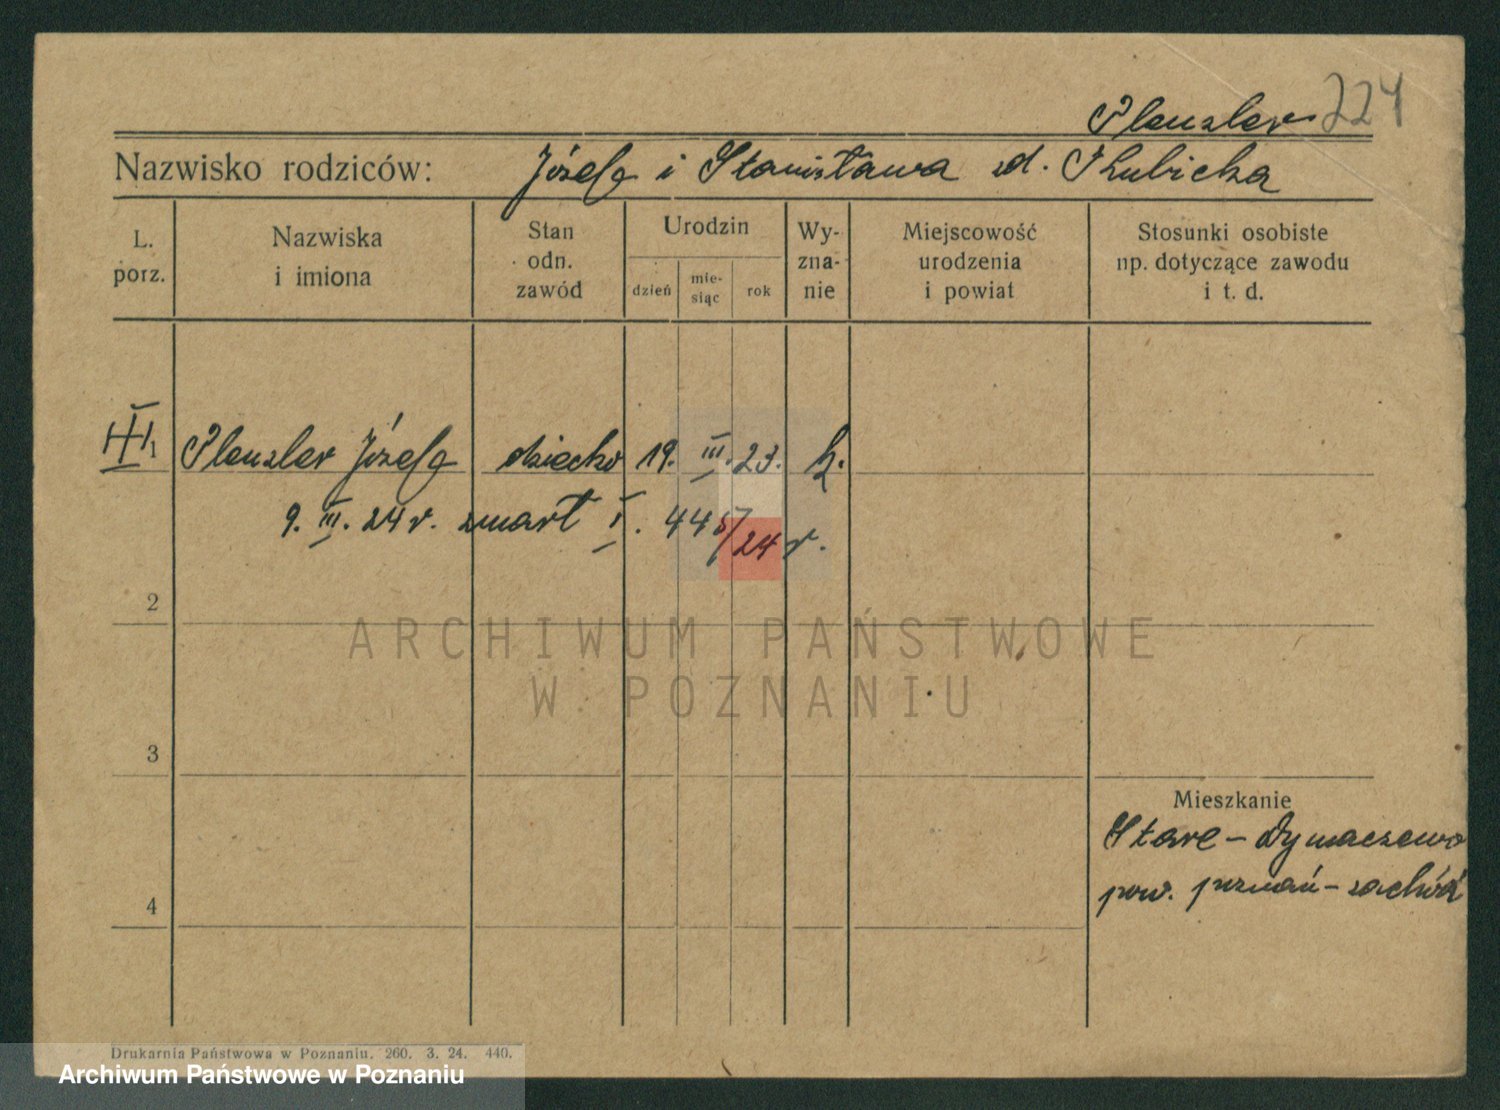 Plenzler 224
Nazwisko rodziców: Józef i Stanisława zd. Skubicka
L. porz. Nazwiska i imiona Stan odn. zawód Urodzin dzień mie-siąc rok Wy-zna-nie Miejscowość urodzenia i powiat Stosunki osobiste np. dotyczące zawodu i t. d.
1 Plenzler Józef dziecko 19. III. 23. k.
9. III. 24 r. zmarł I. 445/24 r.
2
ARCHIWUM PAŃSTWOWE
W POZNANIU
3
Mieszkanie
Stare-Dymaczewo
4 pow. poznań-zachód
Drukarnia Państwowa w Poznaniu. 260. 3. 24. 440.
Archiwum Państwowe w Poznaniu